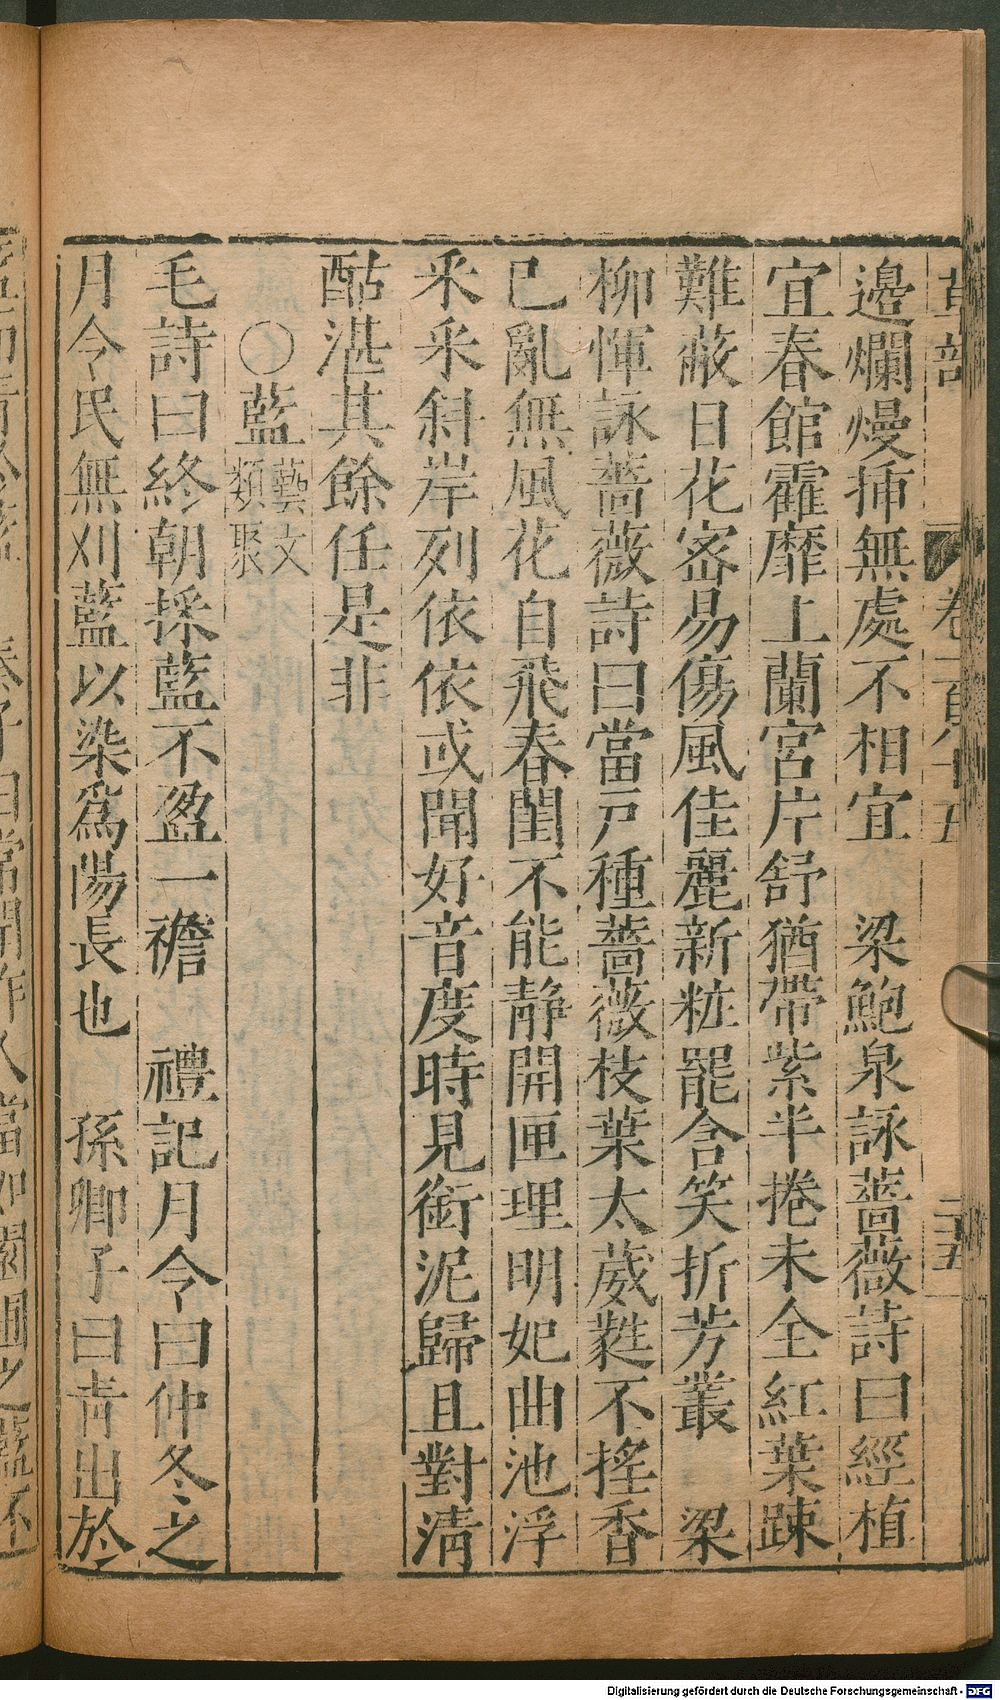 草部 卷一百八十五 二十五
邊爛熳揷無處不相宜 梁鮑泉詠薔薇詩曰經植
宜春館霍靡上蘭宮片舒猶帶紫半捲未全紅葉踈
難蔽日花宻易傷風佳麗新粧罷含笑折芳叢 梁
柳惲詠薔薇詩曰當戸種薔薇枝葉太葳蕤不揺香
已亂無風花自飛春閨不能靜開匣理明妃曲池浮
釆釆斜岸列依依或聞好音度時見銜泥歸且對清
酤湛其餘任是非
〇藍 藝文類聚
毛詩曰終朝採藍不盈一襜 禮記月令曰仲冬之
月令民無刈藍以染爲陽長也 孫卿子曰青出於
Digitalisierung gefördert durch die Deutsche Forschungsgemeinschaft - DFG